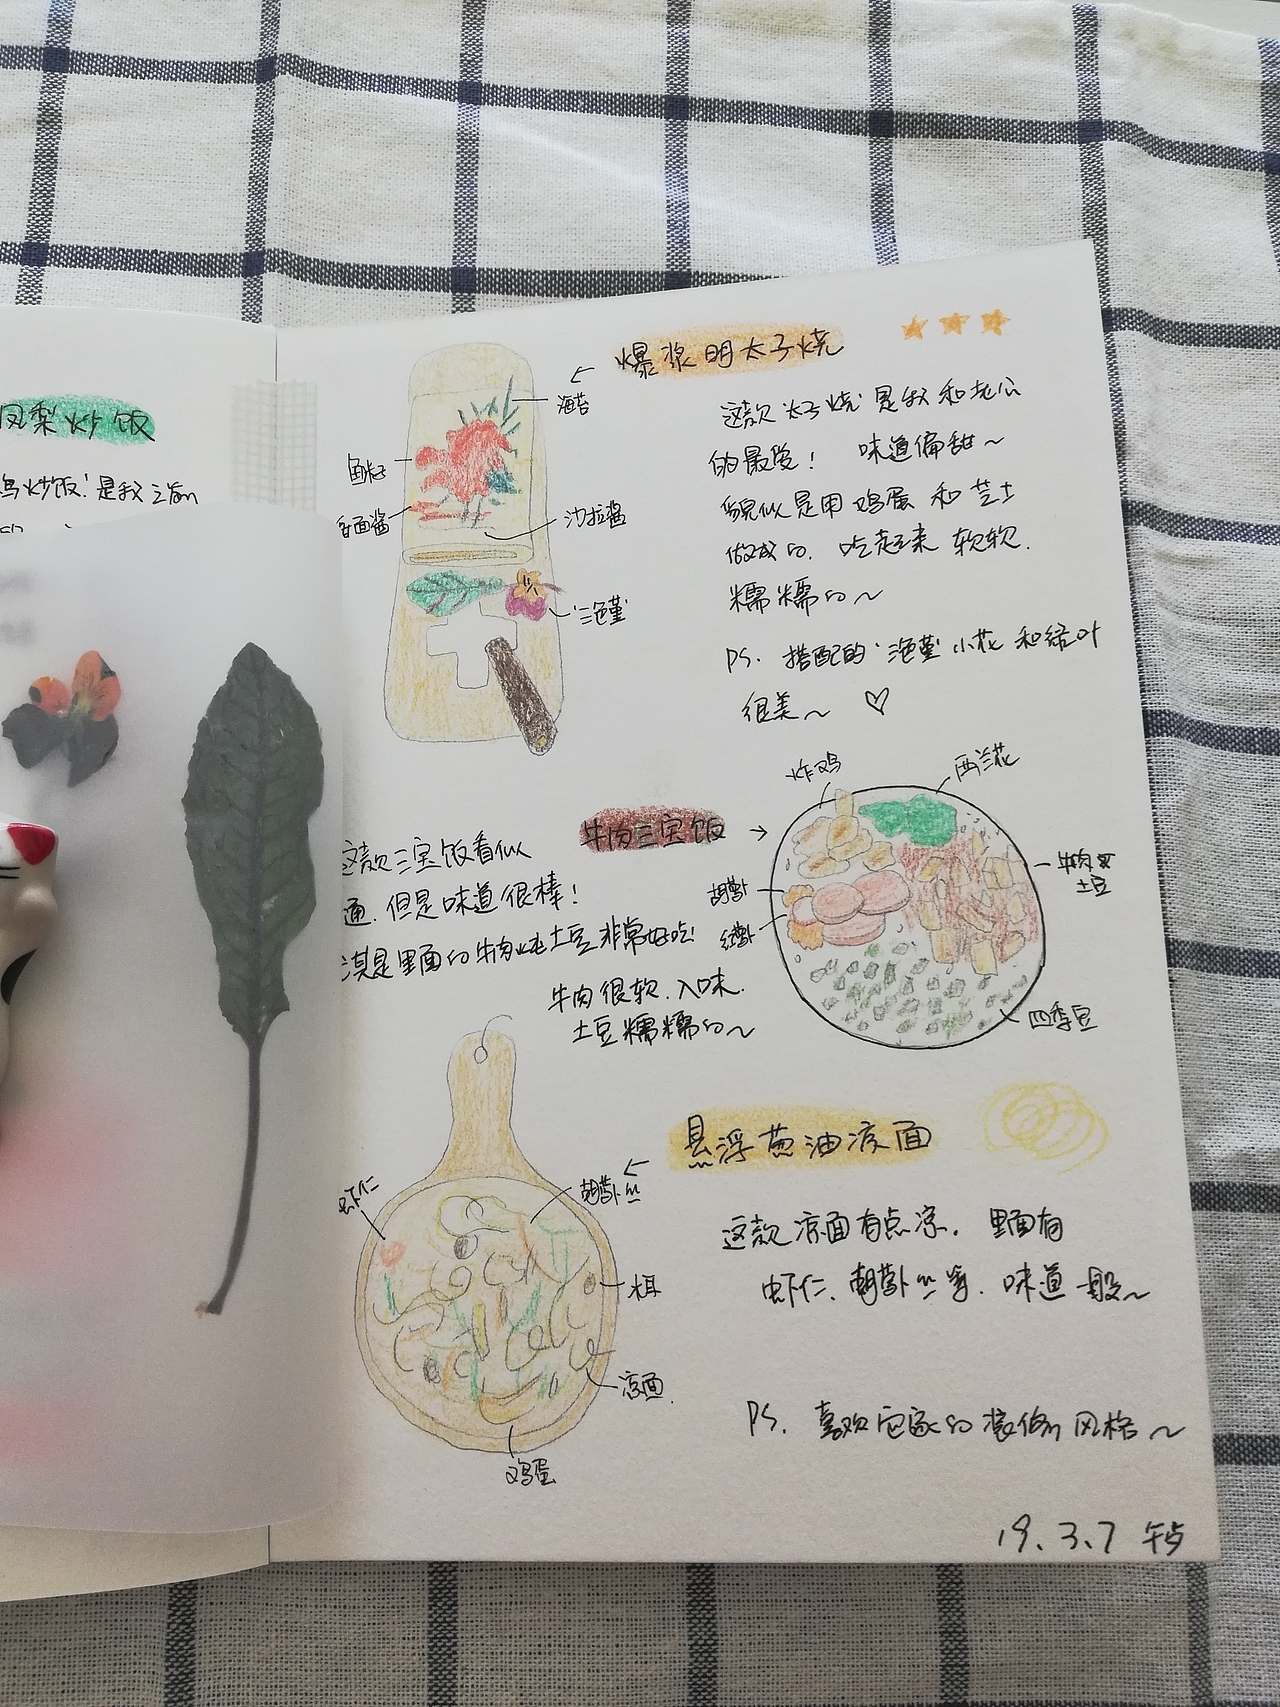 凤梨炒饭
鸟炒饭'是我之前
爆浆明太子烧
海苔
鱼籽
香面酱
沙拉酱
'三色堇'
这款'太子烧'是我和老公
的最爱! 味道偏甜～
貌似是用鸡蛋和芝士
做成的. 吃起来软软
糯糯的～
PS. 搭配的'三色堇'小花和绿叶
很美～ ♡
牛肉三宝饭
炸鸡
西兰花
胡萝卜
红肠
土豆
四季豆
这款三宝饭看似
通.但是味道很棒!
其是里面的牛肉炖土豆非常好吃!
牛肉很软.入味.
土豆糯糯的～
悬浮葱油凉面
虾仁
胡萝卜丝
木耳
凉面.
鸡蛋
这款凉面有点凉. 里面有
虾仁、胡萝卜丝等. 味道一般～
PS. 喜欢它家的装修风格～
19.3.7